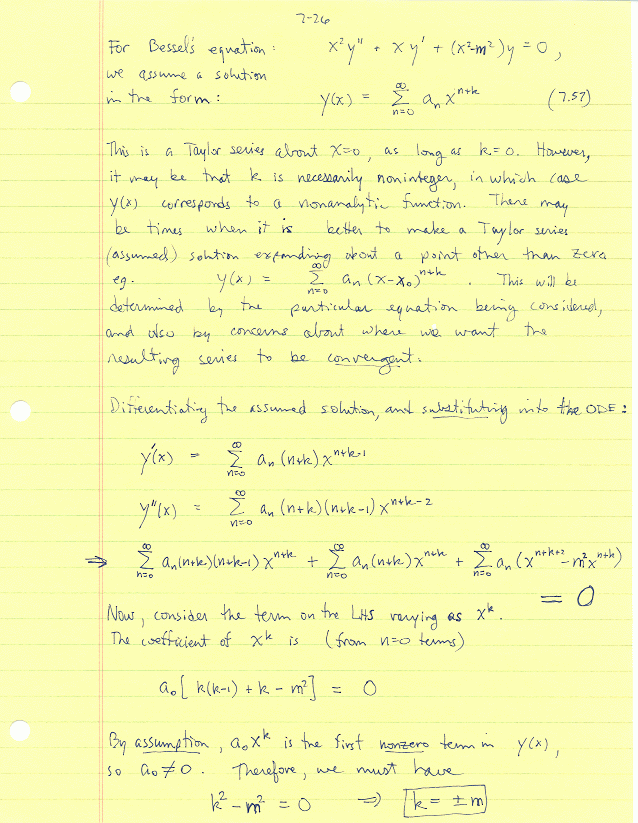 7-26
For Bessel's equation: x²y" + xy' + (x²-m²)y = 0,
we assume a solution
in the form: y(x) = ∞Σn=0 aₙ xⁿ⁺ᵏ (7.57)
This is a Taylor series about x=0, as long as k=0. However,
it may be that k is necessarily noninteger, in which case
y(x) corresponds to a nonanalytic function. There may
be times when it is better to make a Taylor series
(assumed) solution expanding about a point other than zero
eg. y(x) = ∞Σn=0 aₙ (x-x₀)ⁿ⁺ᵏ. This will be
determined by the particular equation being considered,
and also by concerns about where we want the
resulting series to be convergent.
Differentiating the assumed solution, and substituting into the ODE:
y'(x) = ∞Σn=0 aₙ (n+k) xⁿ⁺ᵏ⁻¹
y"(x) = ∞Σn=0 aₙ (n+k)(n+k-1) xⁿ⁺ᵏ⁻²
⇒ ∞Σn=0 aₙ(n+k)(n+k-1) xⁿ⁺ᵏ + ∞Σn=0 aₙ(n+k) xⁿ⁺ᵏ + ∞Σn=0 aₙ (xⁿ⁺ᵏ⁺² - m²xⁿ⁺ᵏ)
= 0
Now, consider the term on the LHS varying as xᵏ.
The coefficient of xᵏ is (from n=0 terms)
a₀[ k(k-1) + k - m²] = 0
By assumption, a₀xᵏ is the first nonzero term in y(x),
so a₀≠0. Therefore, we must have
k² - m² = 0 ⇒ k = ±m